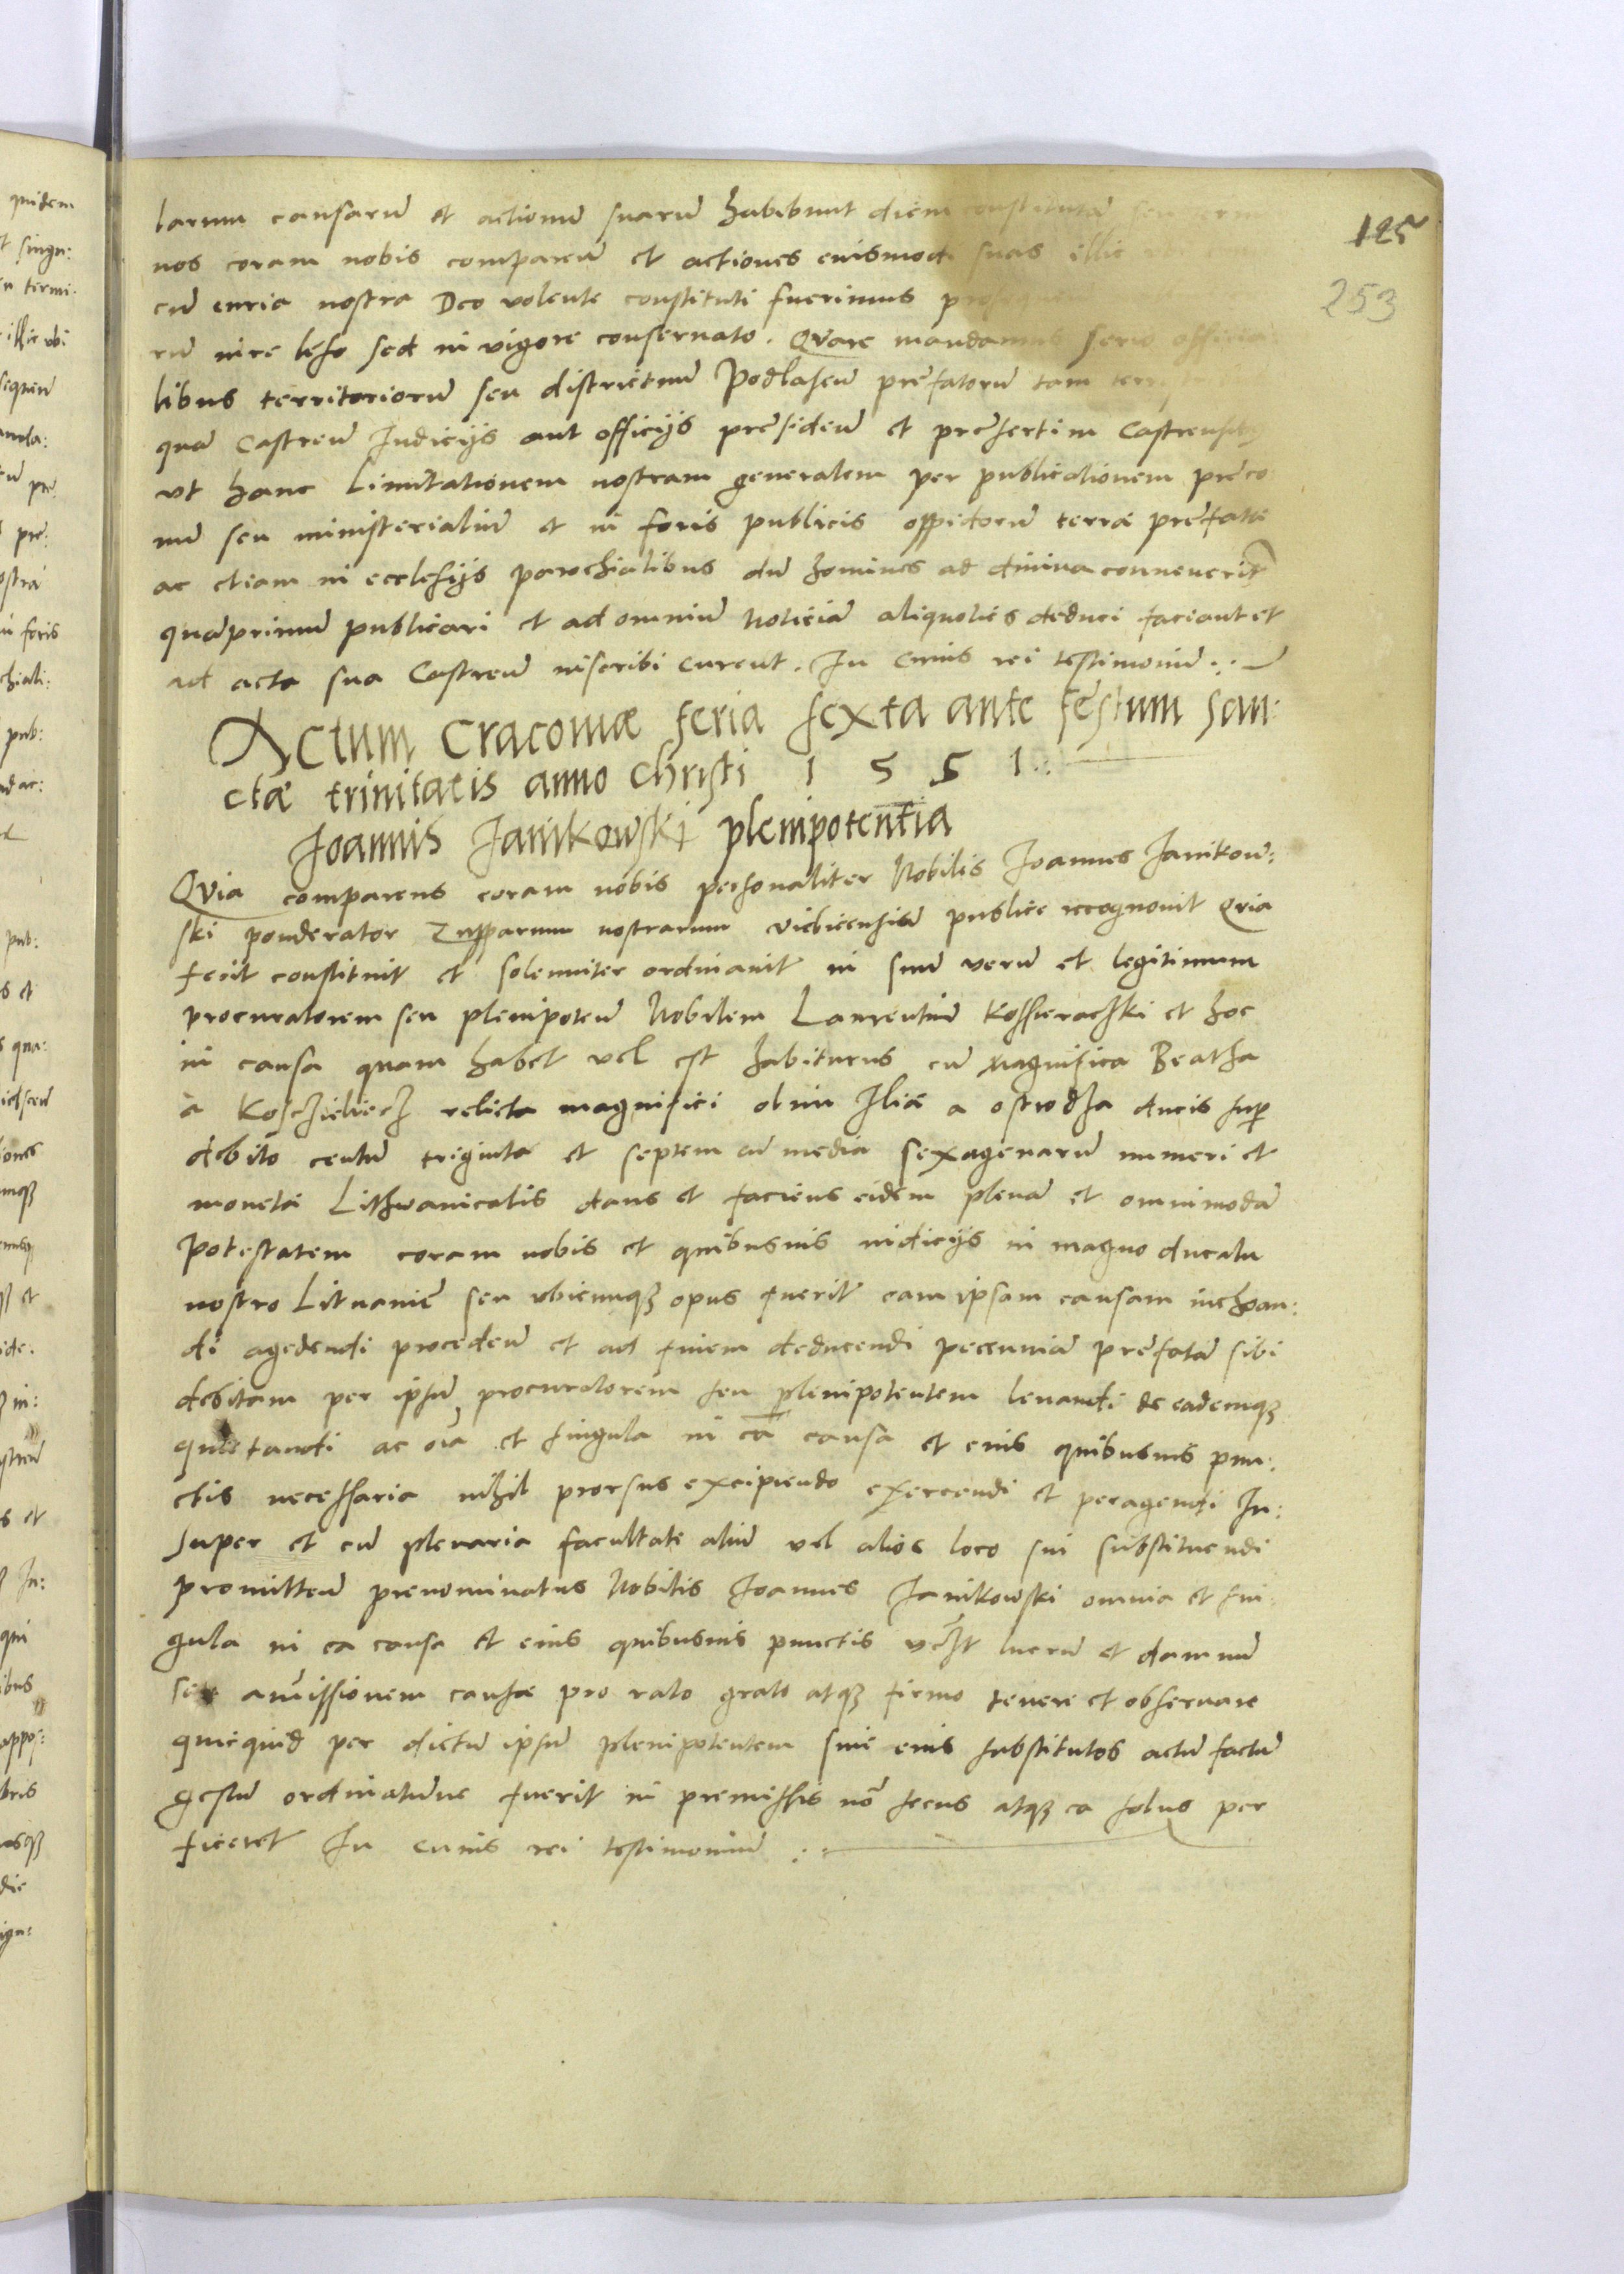 125
253
larum causarū et actionū suarū habebunt diem constitutā seu termi
nos coram nobis compareñ et actiones euismodi suas illic
cū curia nostra Deo volente constituti fuerimus
rū iure leso sed in vigore conseruato. Quare mandamus serio officia
libus territoriorū seu districtuum Podlaseñ prefatorū tam
quā Castreñ Iudicijs aut officijs presideñ et presertim Castrensibus
vt hanc Limitationem nostram generalem per publicationem preco
nū seu ministerialiū et in foris publicis oppidorū terræ prefatæ
ac etiam in ecclesijs parochialibus dū homines ad diuina conuenerit
quāprimum publicari et ad omniū noticiā aliquoties deduci faciant et
ad acta sua Castreñ inscribi curent. In cuius rei testimoniū
Actum Cracouiæ feria sexta ante festum san:
ctæ trinitatis anno Christi 1551
Joannis Janikowski plenipotentia
Quia comparens coram nobis personaliter Nobilis Joannes Janikow:
ski ponderator Zupparum nostrarum vielicensiū publice recognouit Quia
fecit constituit et solenniter ordinauit in suū verū et legitimum
procuratorem seu plenipoteñ Nobilem Laurentiū Kossierachski et hoc
in causa quam habet vel est habiturus cū Magnifica Beatha
a Koschieliech relicta magnifici olim Iliæ a ostrodha ducis sup
debito centū triginta et septem cū media sexagenarū numeri et
monetæ Lithwanicalis dans et faciens eidem plenā et omnimodā
potestatem coram nobis et quibusuis iudicijs in magno ducatu
nostro Lituaniē seu vbicunqȝ opus fuerit eam ipsam causam inchoan:
di agedendi procedeñ et ad finem deducendi pecuniā prefatā sibi
debitam per ipsū procuratorem seu plenipotentem leuandi de eademqȝ
quietandi ac oīa et singula in ea causa et eius quibusuis pun:
ctis necessaria nihil prorsus excipiendo exercendi et peragendi In:
super et cū plenaria facultate aliū vel alios loco sui substituendi
promitteñ prenominatus Nobilis Joannes Janikowski omnia et sin
gula in ea causa et eius quibusuis punctis lucrū et damnū
seu amissionem causæ pro rato grato atqȝ firmo tenere et obseruare
quicquid per dictū ipsū plenipotentem siue eius substitutos actū factū
gestū ordinatumue fuerit in premissis nō secus atqȝ ea solus per
ficeret In cuius rei testimoniū